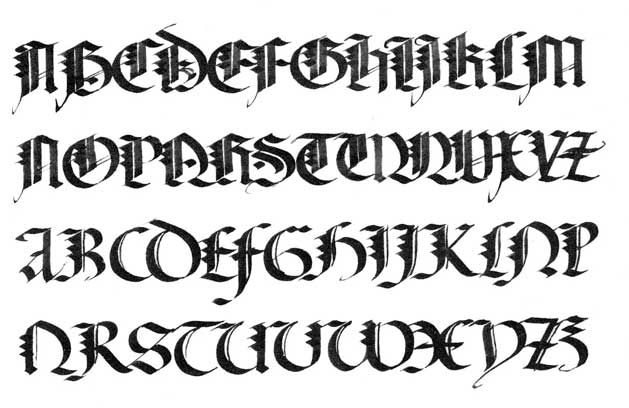 ABCDEFGHIJKLM
NOPQRSTTUVWXYZ
ABCDEFGHIJKLNP
NRSTUVWXYZ